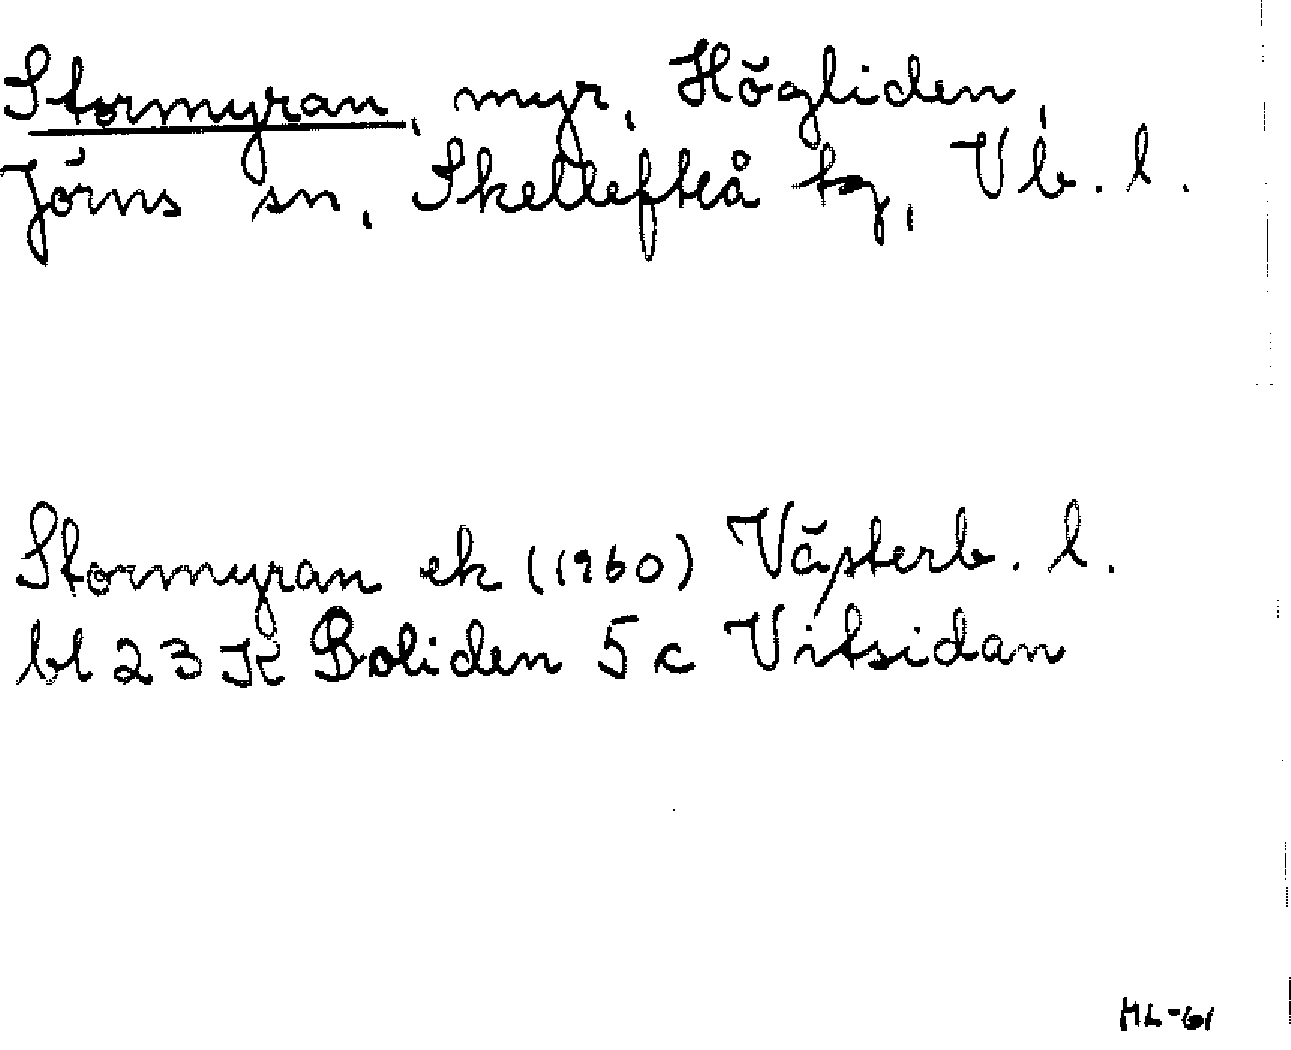 Stormyran, myr, Högliden,
Jörns sn, Skellefteå tg, Vb. l.
Stormyran ek (1960) Västerb. l.
bl 23 K Boliden 5 c Vitsidan
ML-61